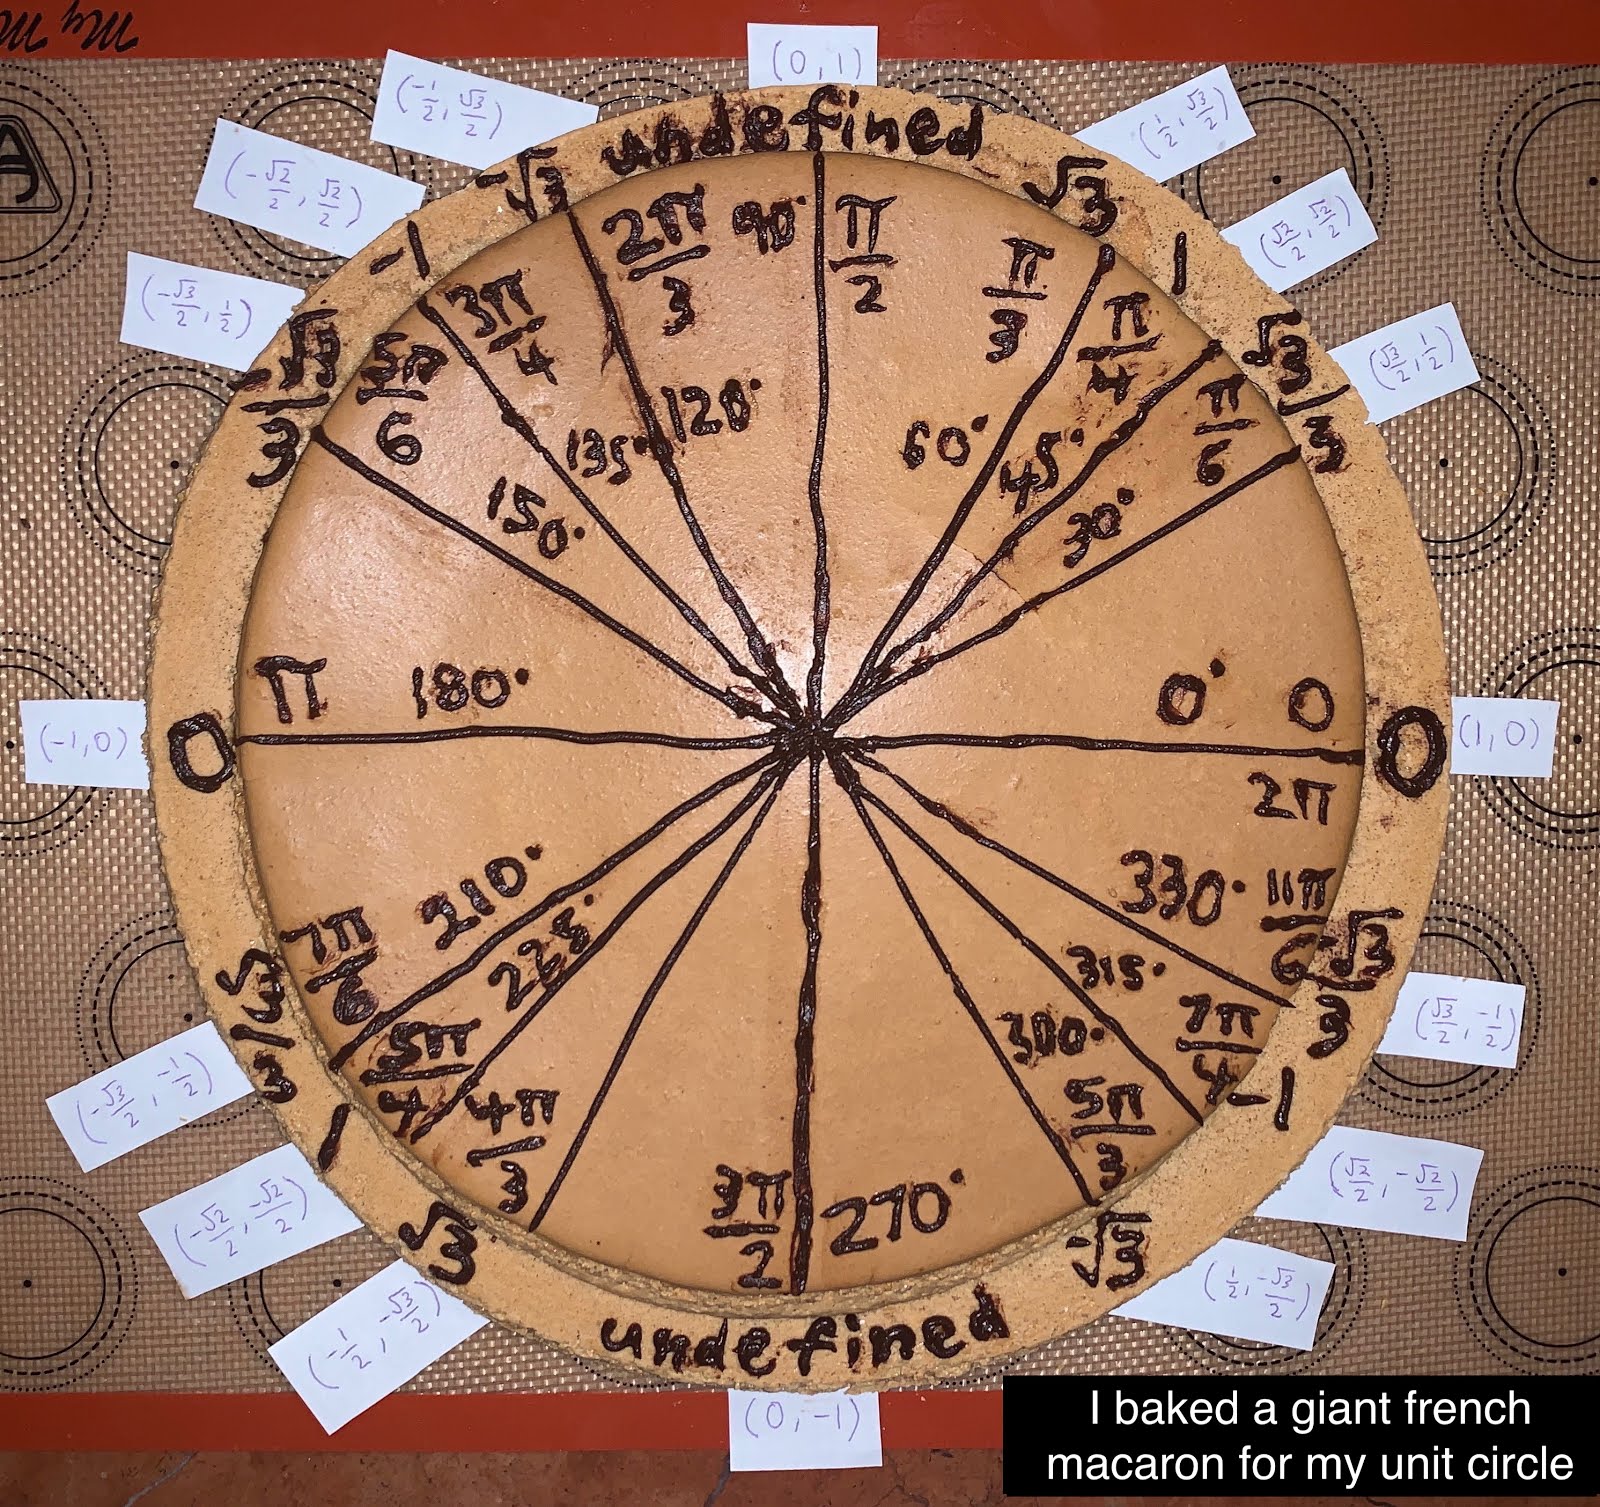 (0, 1)
(-1/2, √3/2)
(1/2, √3/2)
(-√2/2, √2/2)
(√2/2, √2/2)
(-√3/2, 1/2)
(√3/2, 1/2)
undefined
-√3
√3
-1
1
-√3/3
√3/3
2π/3
90°
π/2
π/3
3π/4
π/4
5π/6
π/6
120°
60°
135°
45°
150°
30°
π
180°
0°
0
(-1, 0)
0
0
(1, 0)
2π
210°
330°
11π/6
7π/6
225°
315°
-√3/3
√3/3
300°
7π/4
(√3/2, -1/2)
5π/4
-1
1
4π/3
5π/3
(-√3/2, -1/2)
3π/2
270°
(√2/2, -√2/2)
(-√2/2, -√2/2)
√3
-√3
(1/2, -√3/2)
(-1/2, -√3/2)
undefined
(0, -1)
I baked a giant french
macaron for my unit circle